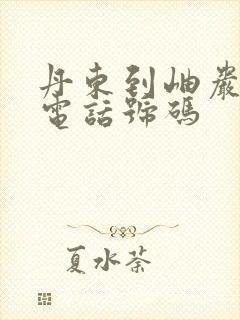 丹東到岫巖
電話號碼
夏水荼